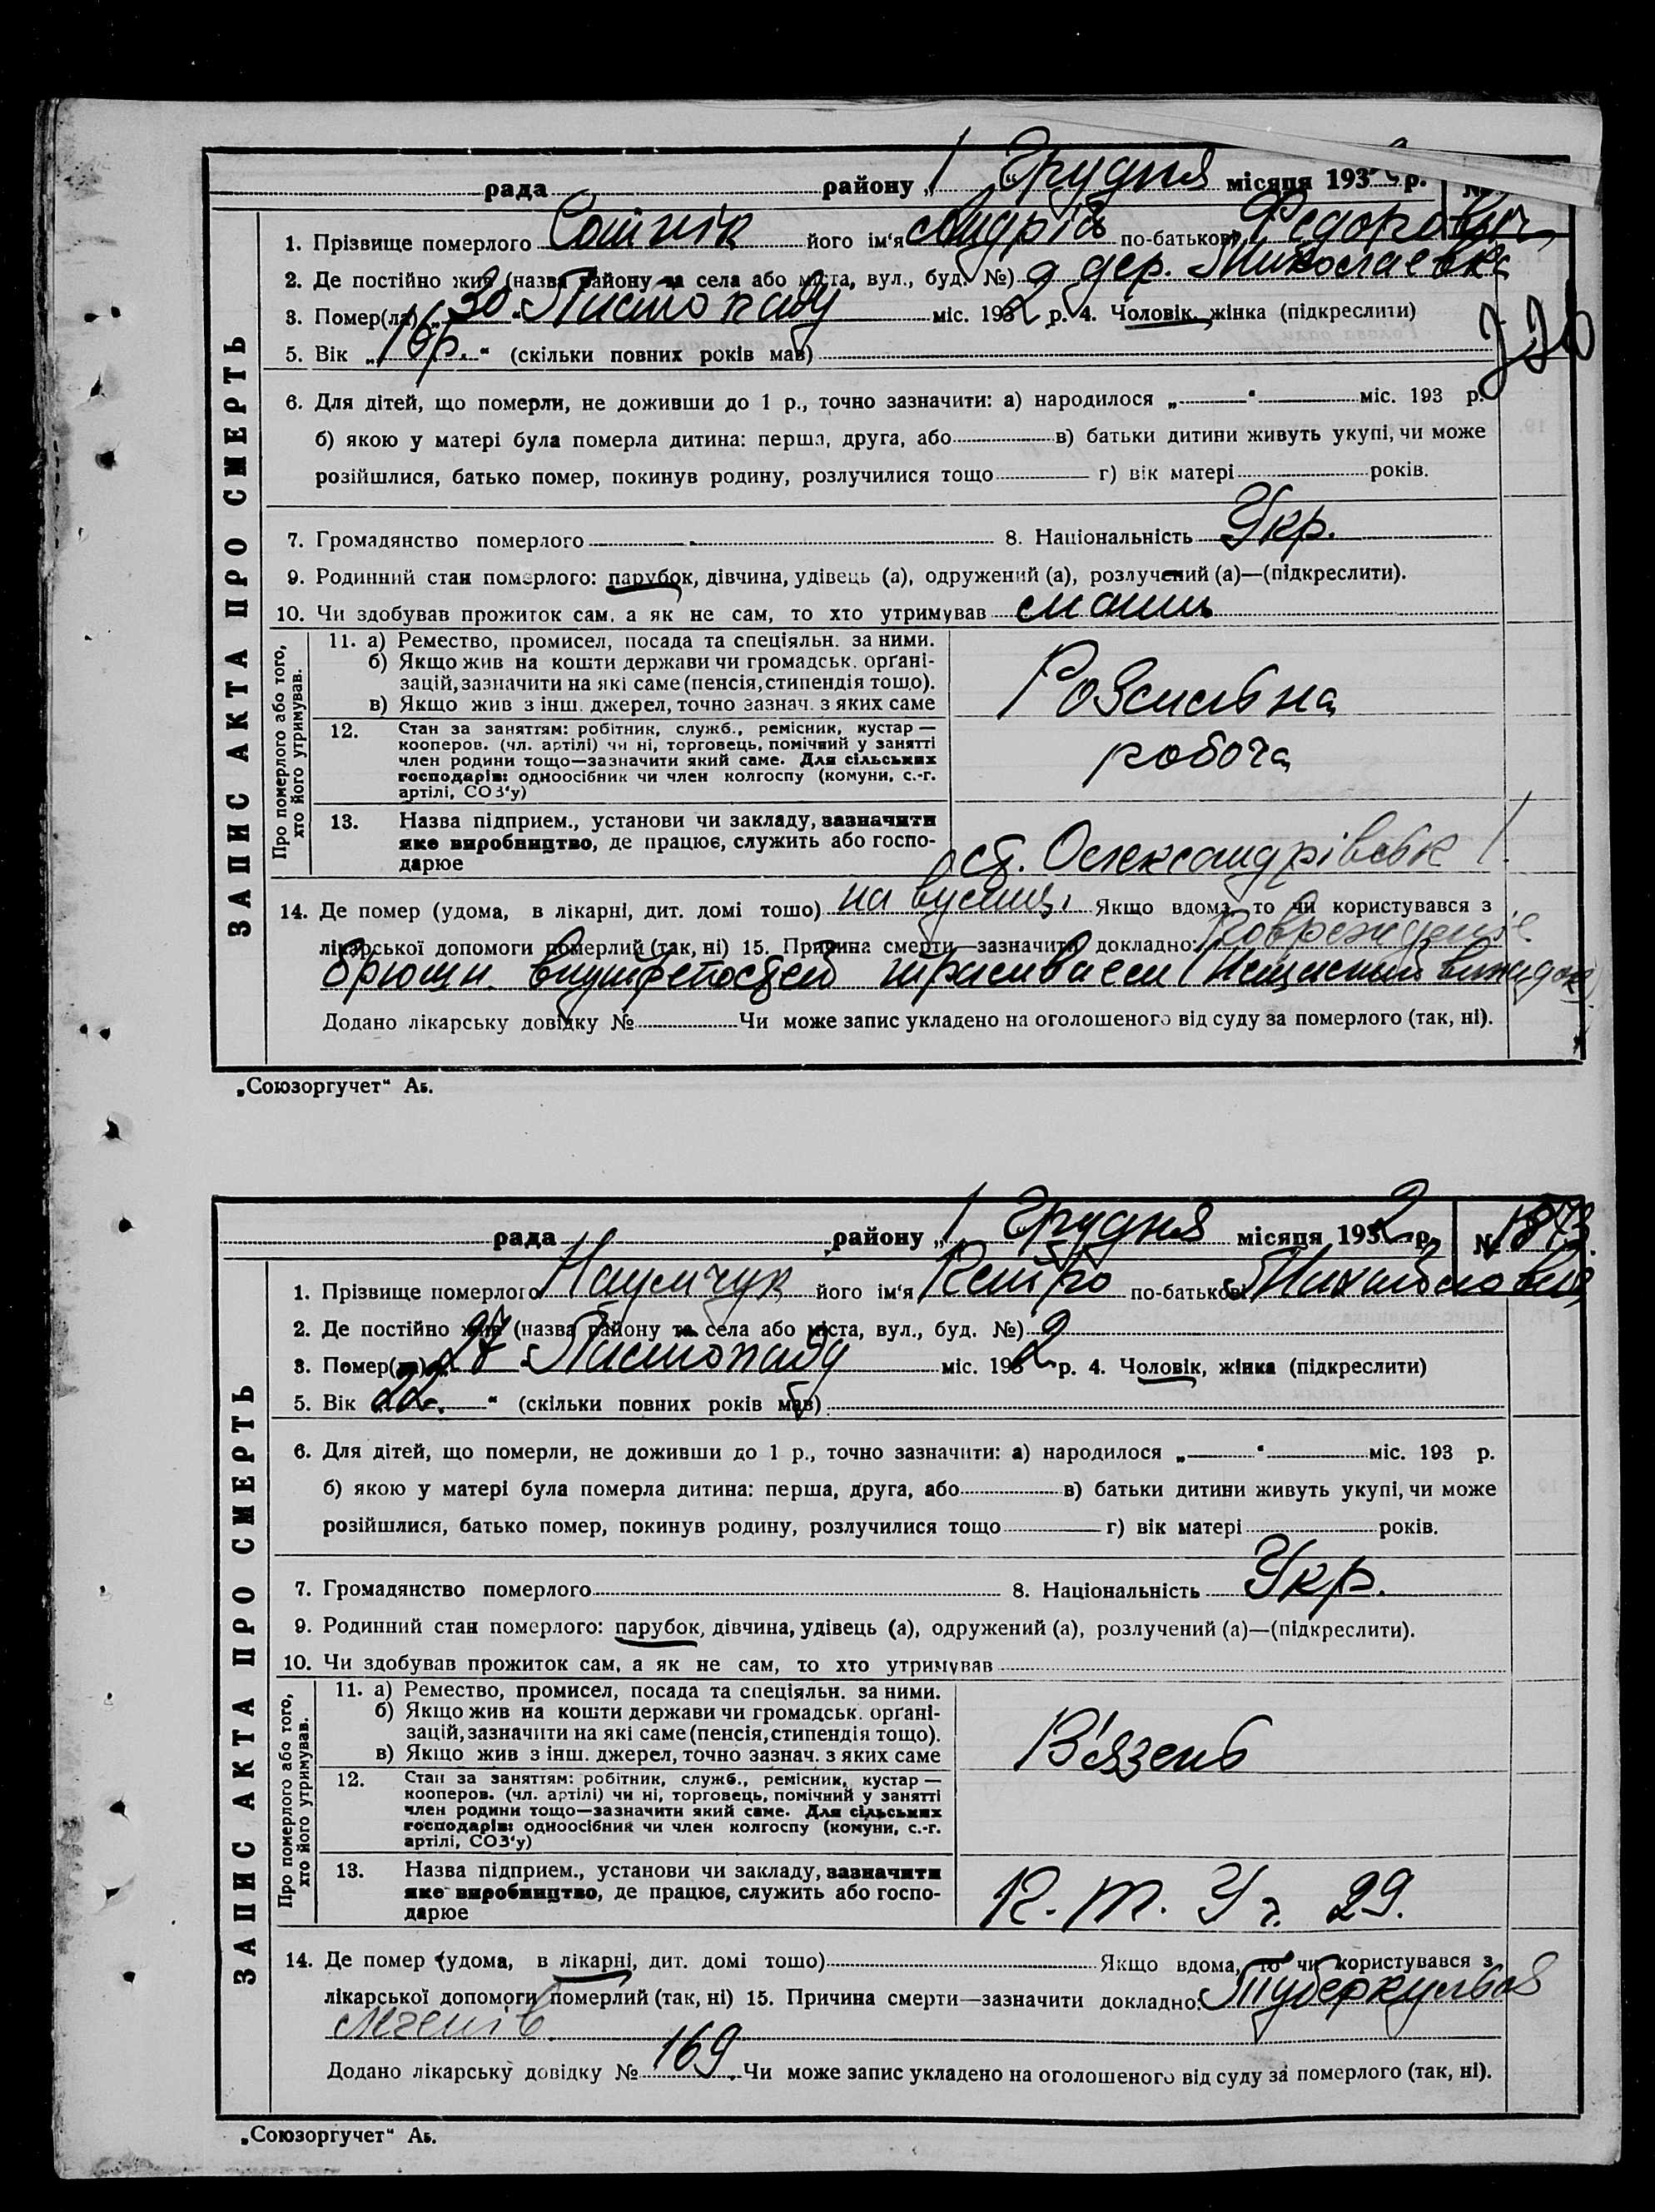 рада районом „1 Грудня місяця 1932 р. №
1. Прізвище померлого Сотнік його ім'я Андрій по-батькові Федорович
2. Де постійно жив (назва району та села або міста, вул., буд. №) дер. Миколаевка
3. Помер(ла) „30“ Листопаду міс. 1932 р. 4. Чоловік, жінка (підкреслити)
5. Вік „16р.“ (скільки повних років мав)
6. Для дітей, що померли, не доживши до 1 р., точно зазначити: а) народилося „ “ міс. 193 р.
б) якою у матері була померла дитина: перша, друга, або в) батьки дитини живуть укупі, чи може
розійшлися, батько помер, покинув родину, розлучилися тощо г) вік матері років.
7. Громадянство померлого 8. Національність Укр.
9. Родинний стан померлого: парубок, дівчина, удівець (а), одружений (а), розлучений (а)—(підкреслити).
10. Чи здобував прожиток сам, а як не сам, то хто утримував
ЗАПИС АКТА ПРО СМЕРТЬ
Про померлого або того, хто його утримував.
11. а) Ремество, промисел, посада та спеціяльн. за ними.
б) Якщо жив на кошти держави чи громадськ. орґані-
зацій, зазначити на які саме (пенсія, стипендія тощо).
в) Якщо жив з інш. джерел, точно зазнач. з яких саме
Розсильна
12. Стан за заняттям: робітник, служб., ремісник, кустар —
кооперов. (чл. артілі) чи ні, торговець, помічний у занятті
член родини тощо—зазначити який саме. Для сільських
господарів: одноосібник чи член колгоспу (комуни, с.-г.
артілі, СОЗ'у)
робоча
13. Назва підприєм., установи чи закладу, зазначити
яке виробництво, де працює, служить або госпо-
дарює
ст. Олександрівськ 1.
14. Де помер (удома, в лікарні, дит. домі тощо) на вулиці Якщо вдома, то чи користувався з
лікарської допомоги померлий (так, ні) 15. Причина смерти—зазначити докладно: Повреждение
брюшн. внутреностей трамваем (Нещасний випадок)
Додано лікарську довідку № Чи може запис укладено на оголошеного від суду за померлого (так, ні).
„Союзоргучет“ Аб.
рада району „1 Грудня місяця 1932 р. № 1873.
1. Прізвище померлого Наумчук його ім'я Петро по-батькові Михайлович
2. Де постійно жив (назва району та села або міста, вул., буд. №)
3. Помер(ла) 27 Листопаду міс. 1932 р. 4. Чоловік, жінка (підкреслити)
5. Вік 22. “ (скільки повних років мав)
6. Для дітей, що померли, не доживши до 1 р., точно зазначити: а) народилося „ “ міс. 193 р.
б) якою у матері була померла дитина: перша, друга, або в) батьки дитини живуть укупі, чи може
розійшлися, батько помер, покинув родину, розлучилися тощо г) вік матері років.
7. Громадянство померлого 8. Національність Укр.
9. Родинний стан померлого: парубок, дівчина, удівець (а), одружений (а), розлучений (а)—(підкреслити).
10. Чи здобував прожиток сам, а як не сам, то хто утримував
ЗАПИС АКТА ПРО СМЕРТЬ
Про померлого або того, хто його утримував.
11. а) Ремество, промисел, посада та спеціяльн. за ними.
б) Якщо жив на кошти держави чи громадськ. орґані-
зацій, зазначити на які саме (пенсія, стипендія тощо).
в) Якщо жив з інш. джерел, точно зазнач. з яких саме
В'язень
12. Стан за заняттям: робітник, служб., ремісник, кустар —
кооперов. (чл. артілі) чи ні, торговець, помічний у занятті
член родини тощо—зазначити який саме. Для сільських
господарів: одноосібник чи член колгоспу (комуни, с.-г.
артілі, СОЗ'у)
13. Назва підприєм., установи чи закладу, зазначити
яке виробництво, де працює, служить або госпо-
дарює
К. т. Уч. 29.
14. Де помер (удома, в лікарні, дит. домі тощо) Якщо вдома, то чи користувався з
лікарської допомоги померлий (так, ні) 15. Причина смерти—зазначити докладно: Туберкульоз
легенів
Додано лікарську довідку № 169 Чи може запис укладено на оголошеного від суду за померлого (так, ні).
„Союзоргучет“ Аб.